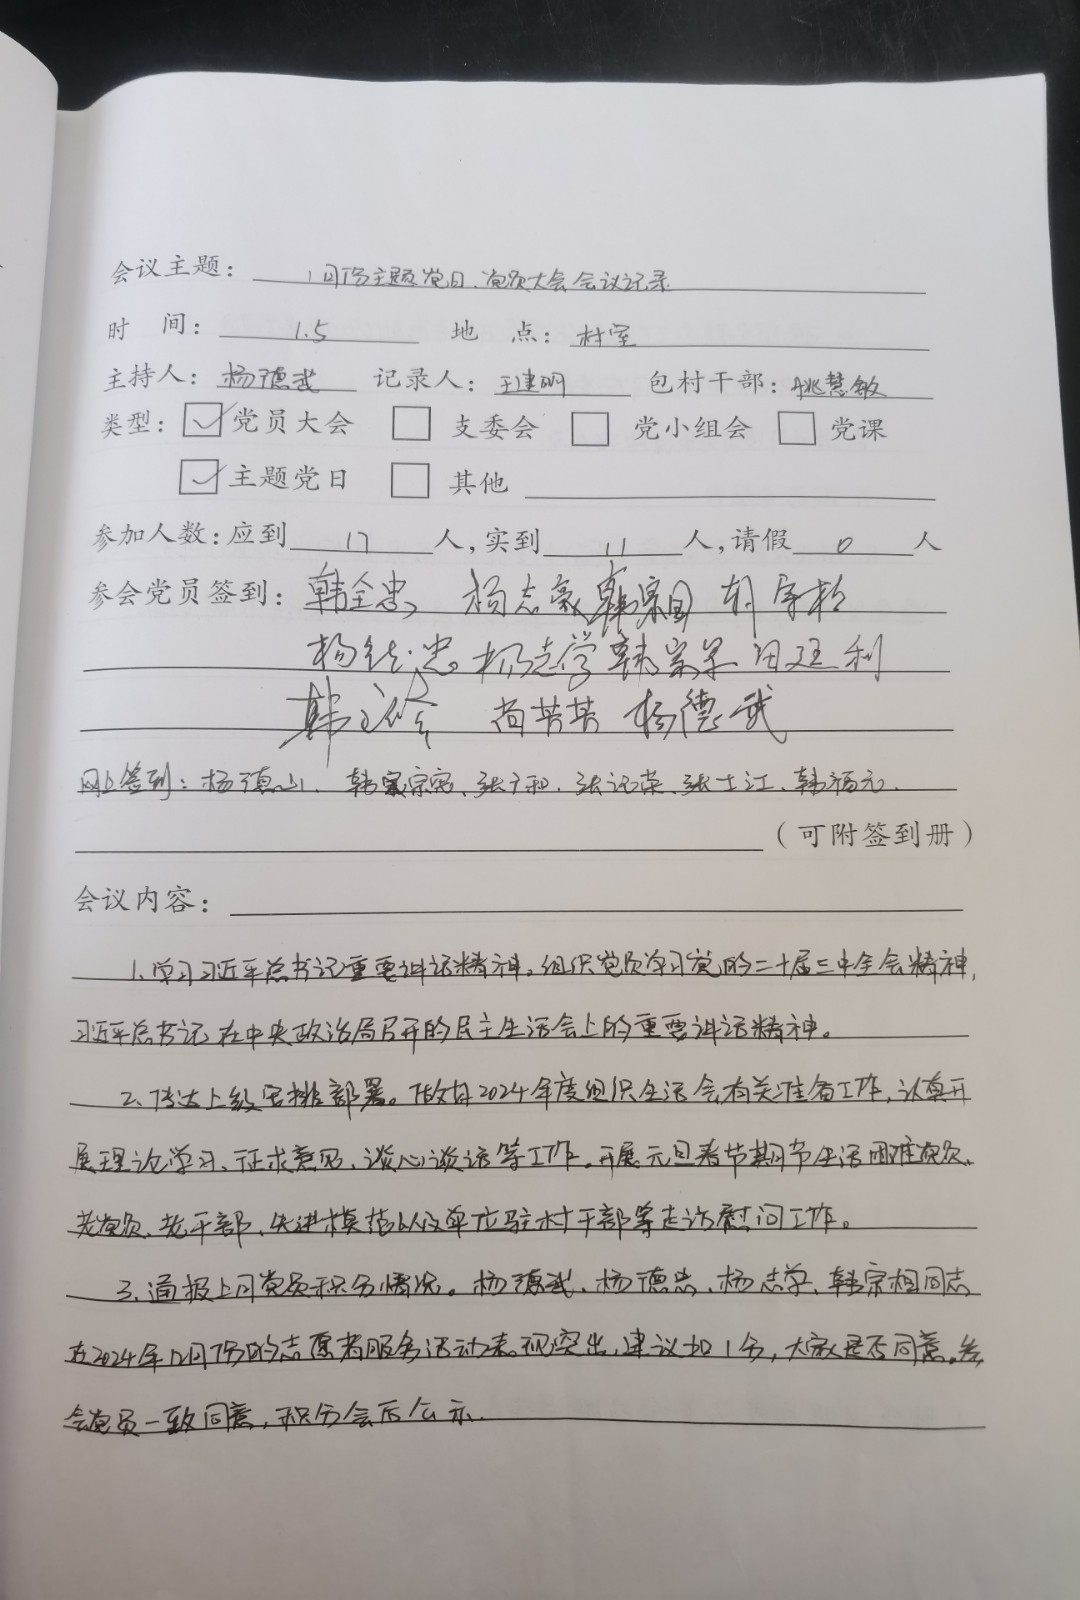 会议主题：1月份主题党日、党员大会会议记录
时 间：1.5 地 点：村室
主持人：杨德武 记录人：王建明 包村干部：姚慧敏
类型：党员大会 支委会 党小组会 党课
主题党日 其他
参加人数：应到17人，实到11人，请假0人
参会党员签到：韩全忠 杨志豪 韩宗
杨德忠 杨志学 韩 田廷利
韩 尚芳芳 杨德武
网上签到：杨德山、韩宗宽、张广和、张记荣、张士江、韩福元、
（可附签到册）
会议内容：
1、学习习近平总书记重要讲话精神。组织党员学习党的二十届三中全会精神，
习近平总书记在中央政治局召开的民主生活会上的重要讲话精神。
2、传达上级安排部署。做好2024年度组织生活会有关准备工作，认真开
展理论学习、征求意见、谈心谈话等工作。开展元旦春节期节生活困难党员、
老党员、老干部、先进模范以及单位驻村干部等走访慰问工作。
3、通报上月党员积分情况。杨德武、杨德忠、杨志学、韩宗相同志
在2024年12月份的志愿者服务活动表现突出，建议加1分，大家是否同意。参
会党员一致同意，积分会后公示.